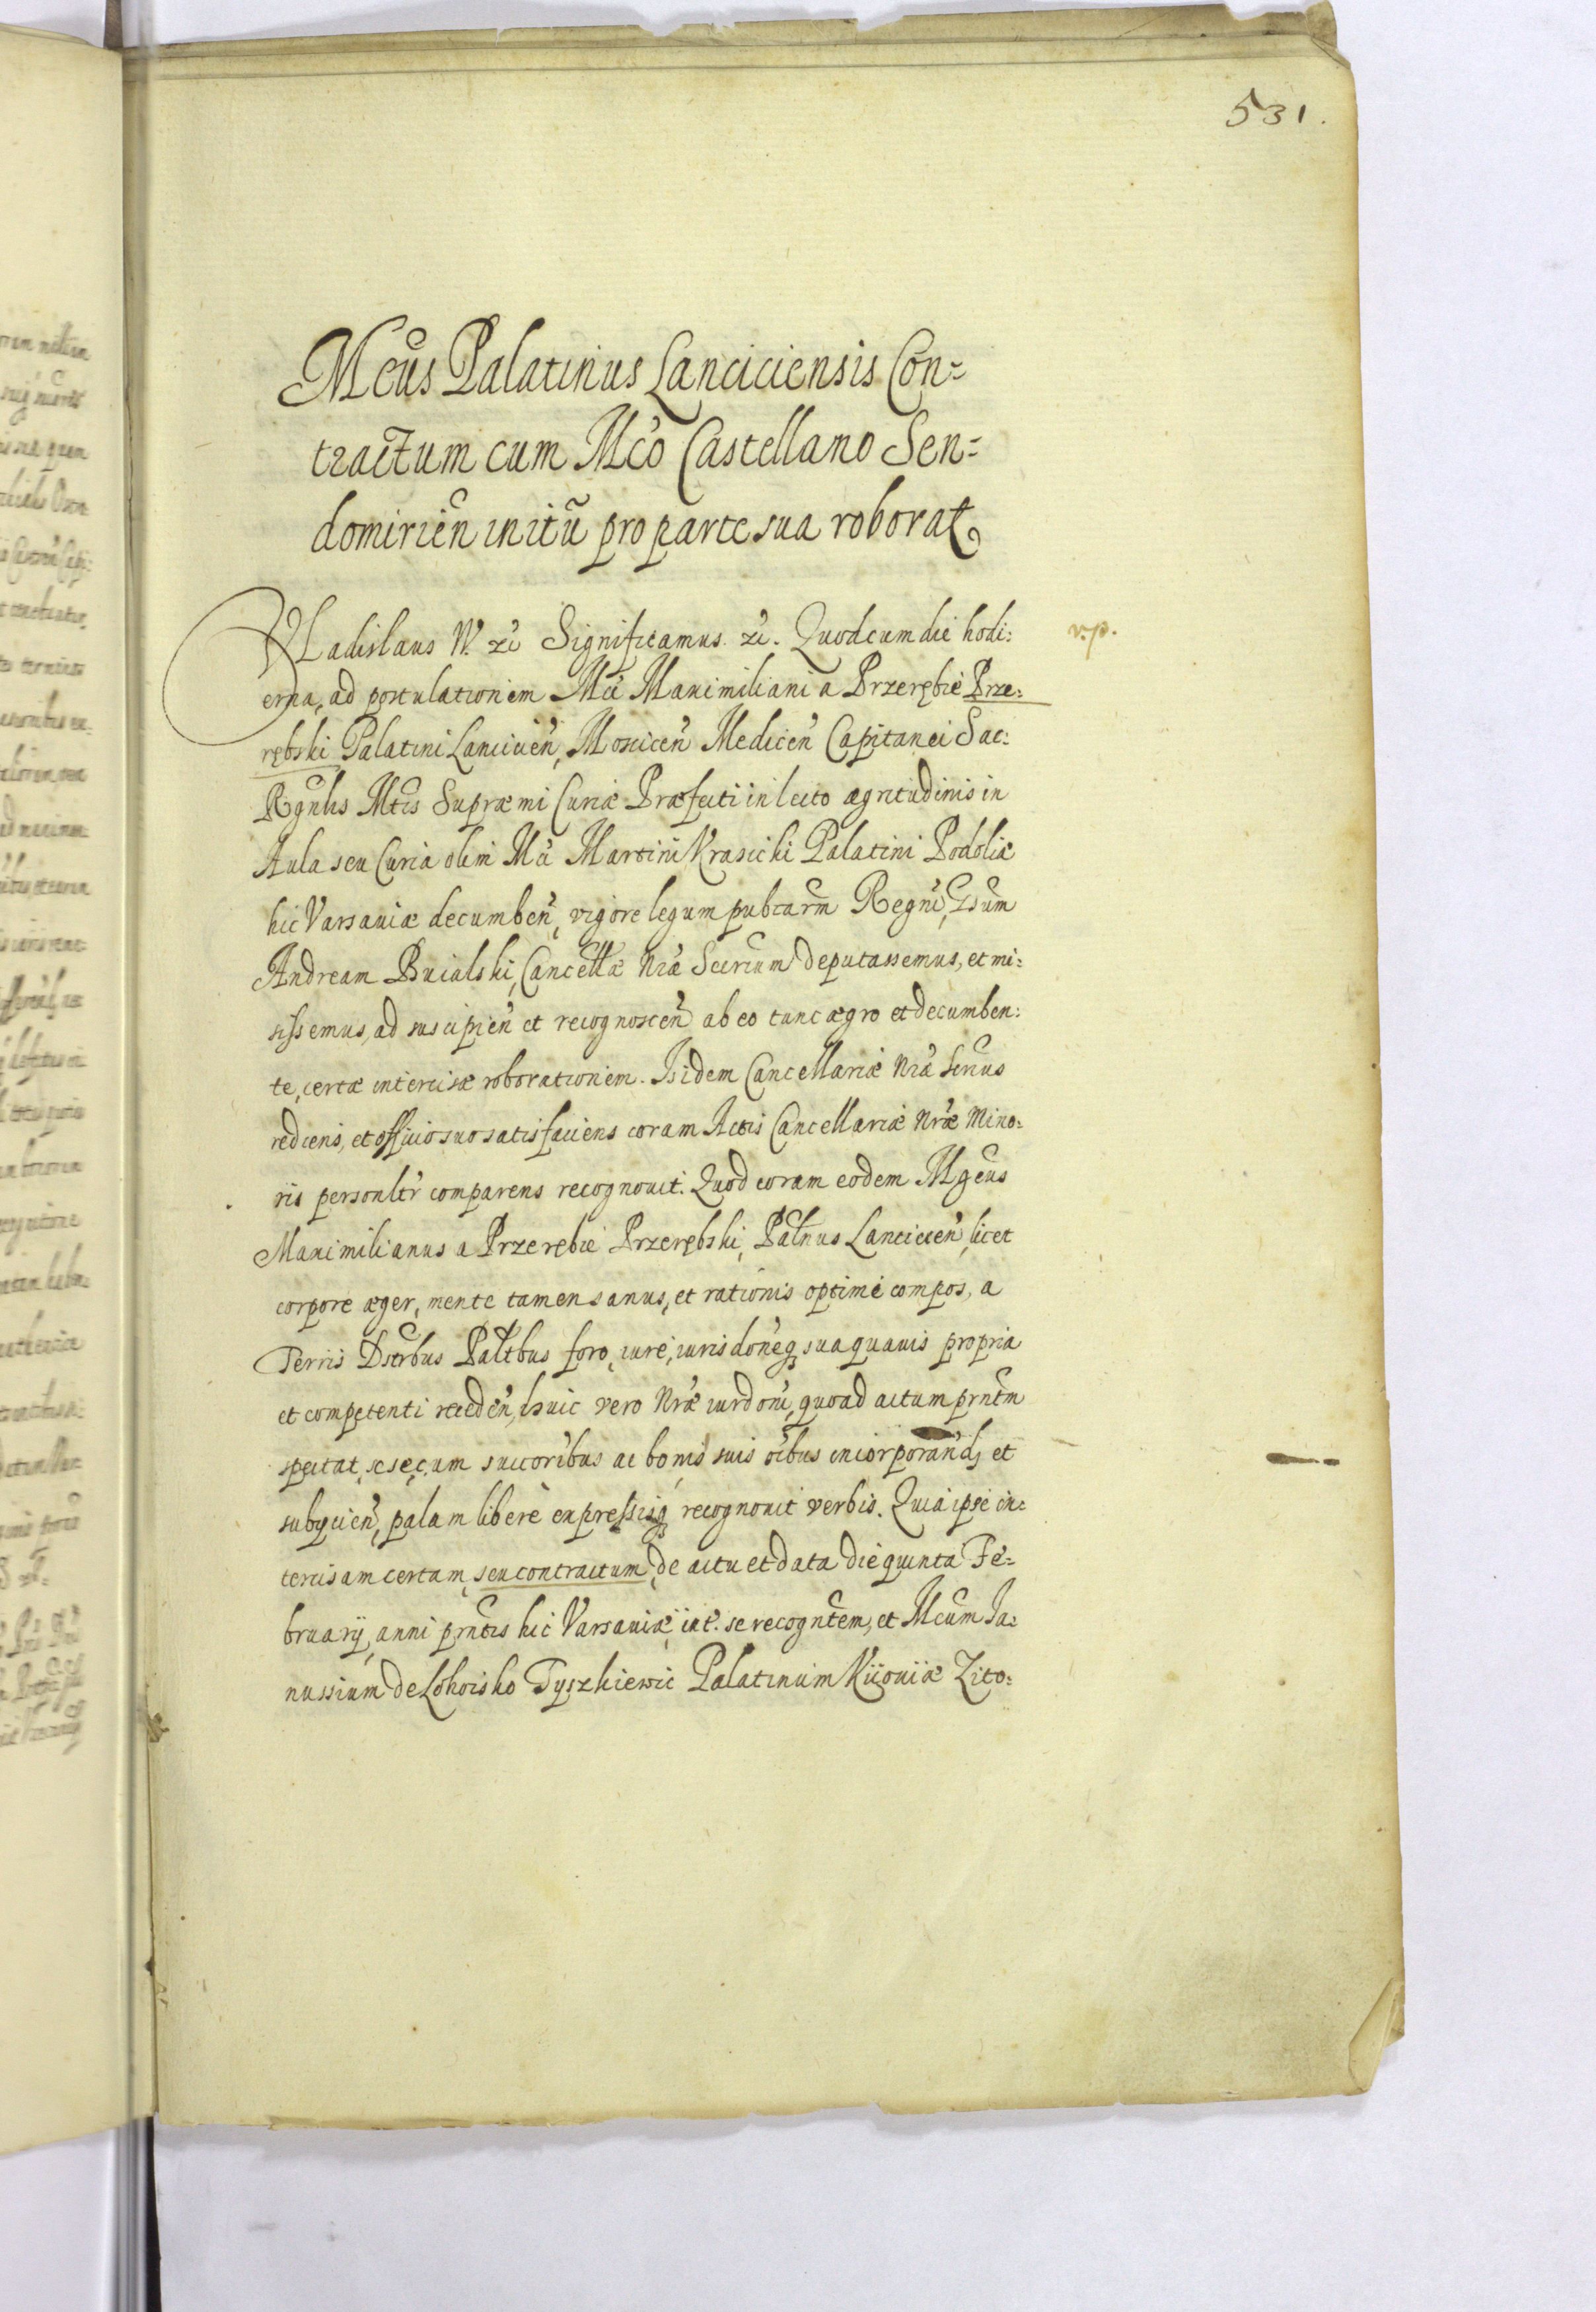 531.
Mcus Palatinus Lanciciensis Con=
tractum cum Mco Castellano Sen=
domirien initũ pro parte sua roborat
VLadislaus IV. zc Significamus. zc. Quod cum die hodi:
v.p.
erna, ad postulationem Mci Maximiliani a Przerębie Prze:
rębski Palatini Lancicien, Moscicen Medicen Capitanei Sac:
Rgnlis Mtis Supræmi Curiæ Præfecti in lecto ægritudinis in
Aula seu Curia olim Mci Martini Krasicki Palatini Podoliæ
hic Varsauiæ decumben, vigore legum pubcarm Regni, Gsum
Andream Buialski, Cancellæ Nræ Secrium deputassemus, et mi:
sissemus, ad suscipien et recognoscen ab eo tunc ægro et decumben:
te, certæ intercisæ roborationem. Isidem Cancellariæ Nræ Scrius
rediens, et officio suo satisfaciens coram Actis Cancellariæ Nræ Mino:
ris personltr comparens recognouit. Quod coram eodem Mgcus
Maximilianus a Przerębie Przerębski, Palnus Lancicien, licet
corpore æger, mente tamen sanus, et rationis optime compos, a
Terris Dstrbus Paltbus foro, iure, iurisdoneq3 sua quauis propria
et competenti receden, huic vero Nræ iurdoni, quoad actum prntm
spectat, sese cum succoribus ac bonis suis oibus incorporand, et
subijcien, palam libere expressisq3 recognouit verbis. Quia ipse in:
tercisam certam, seu contractum, de actu et data die quinta Fe:
bruarij, anni prntis hic Varsauiæ, int. se recogntem, et Mcum Ia:
nussium de Lohoisko Tyszkiewic Palatinum Kiiouiæ Zito: